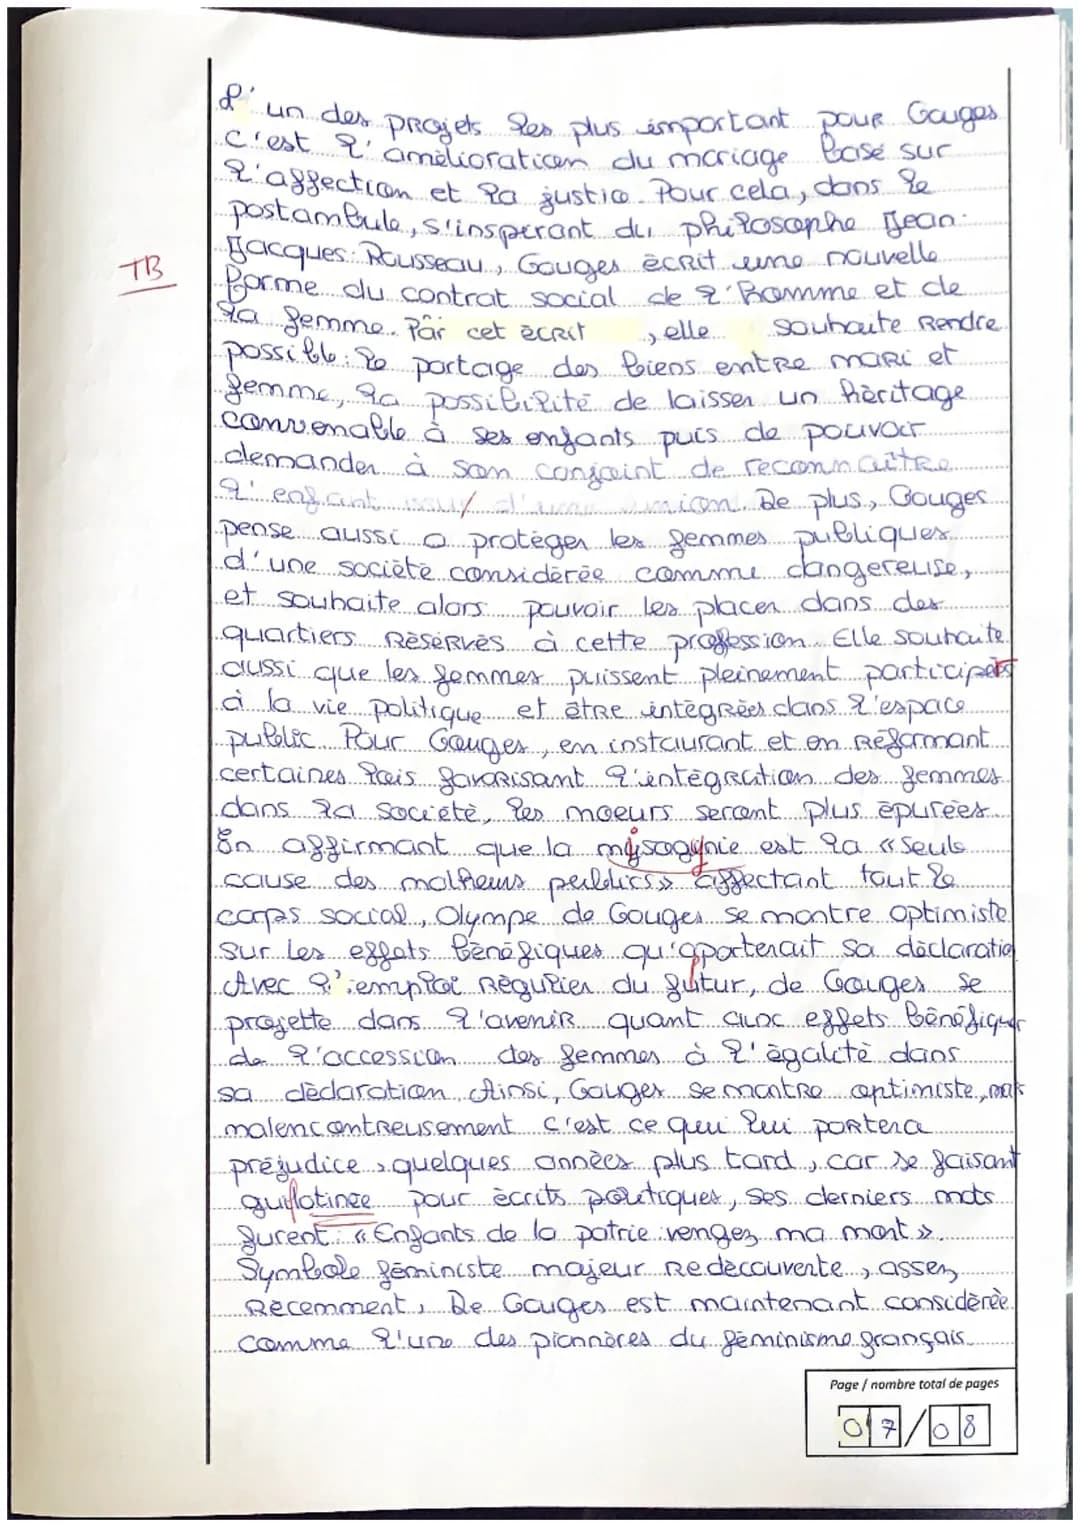 L'un des projets les plus important pour Gouges
c'est l'amélioration du mariage basé sur
l'affection et la justice. Pour cela, dans le
postambule, s'inspirant du philosophe Jean-
Jacques Rousseau, Gouges écrit une nouvelle
TB
forme du contrat social de l'homme et de
la femme. Par cet écrit , elle souhaite rendre
possible : le partage des biens entre mari et
femme, la possibilité de laisser un héritage
convenable à ses enfants puis de pouvoir
demander à son conjoint de reconnaître
l'enfant d'une union. De plus, Gouges
pense aussi a protéger les femmes publiques
d'une société considérée comme dangereuse,
et souhaite alors pouvoir les placer dans des
quartiers réservés à cette profession. Elle souhaite
aussi que les femmes puissent pleinement participer
à la vie politique et être intégrées dans l'espace
public. Pour Gouges, en instaurant et en réformant
certaines lois favorisant l'intégration des femmes
dans la société, les moeurs seront plus épurées.
En affirmant que la misogynie est la « seule
cause des malheurs publics » affectant tout le
corps social, Olympe de Gouges se montre optimiste
sur les effets bénéfiques qu'apporterait sa déclaratio
Avec l'emploi régulier du futur, de Gouges se
projette dans l'avenir quant aux effets bénéfiques
de l'accession des femmes à l'égalité dans
sa déclaration. Ainsi, Gouges se montre optimiste, mais
malencontreusement c'est ce qui lui portera
préjudice, quelques années plus tard, car se faisant
guillotinee pour écrits politiques, ses derniers mots
furent : « Enfants de la patrie vengez ma mort ».
Symbole féministe majeur redécouverte, assez
récemment, De Gouges est maintenant considérée
comme l'une des pionnères du féminisme français.
Page / nombre total de pages
07/08